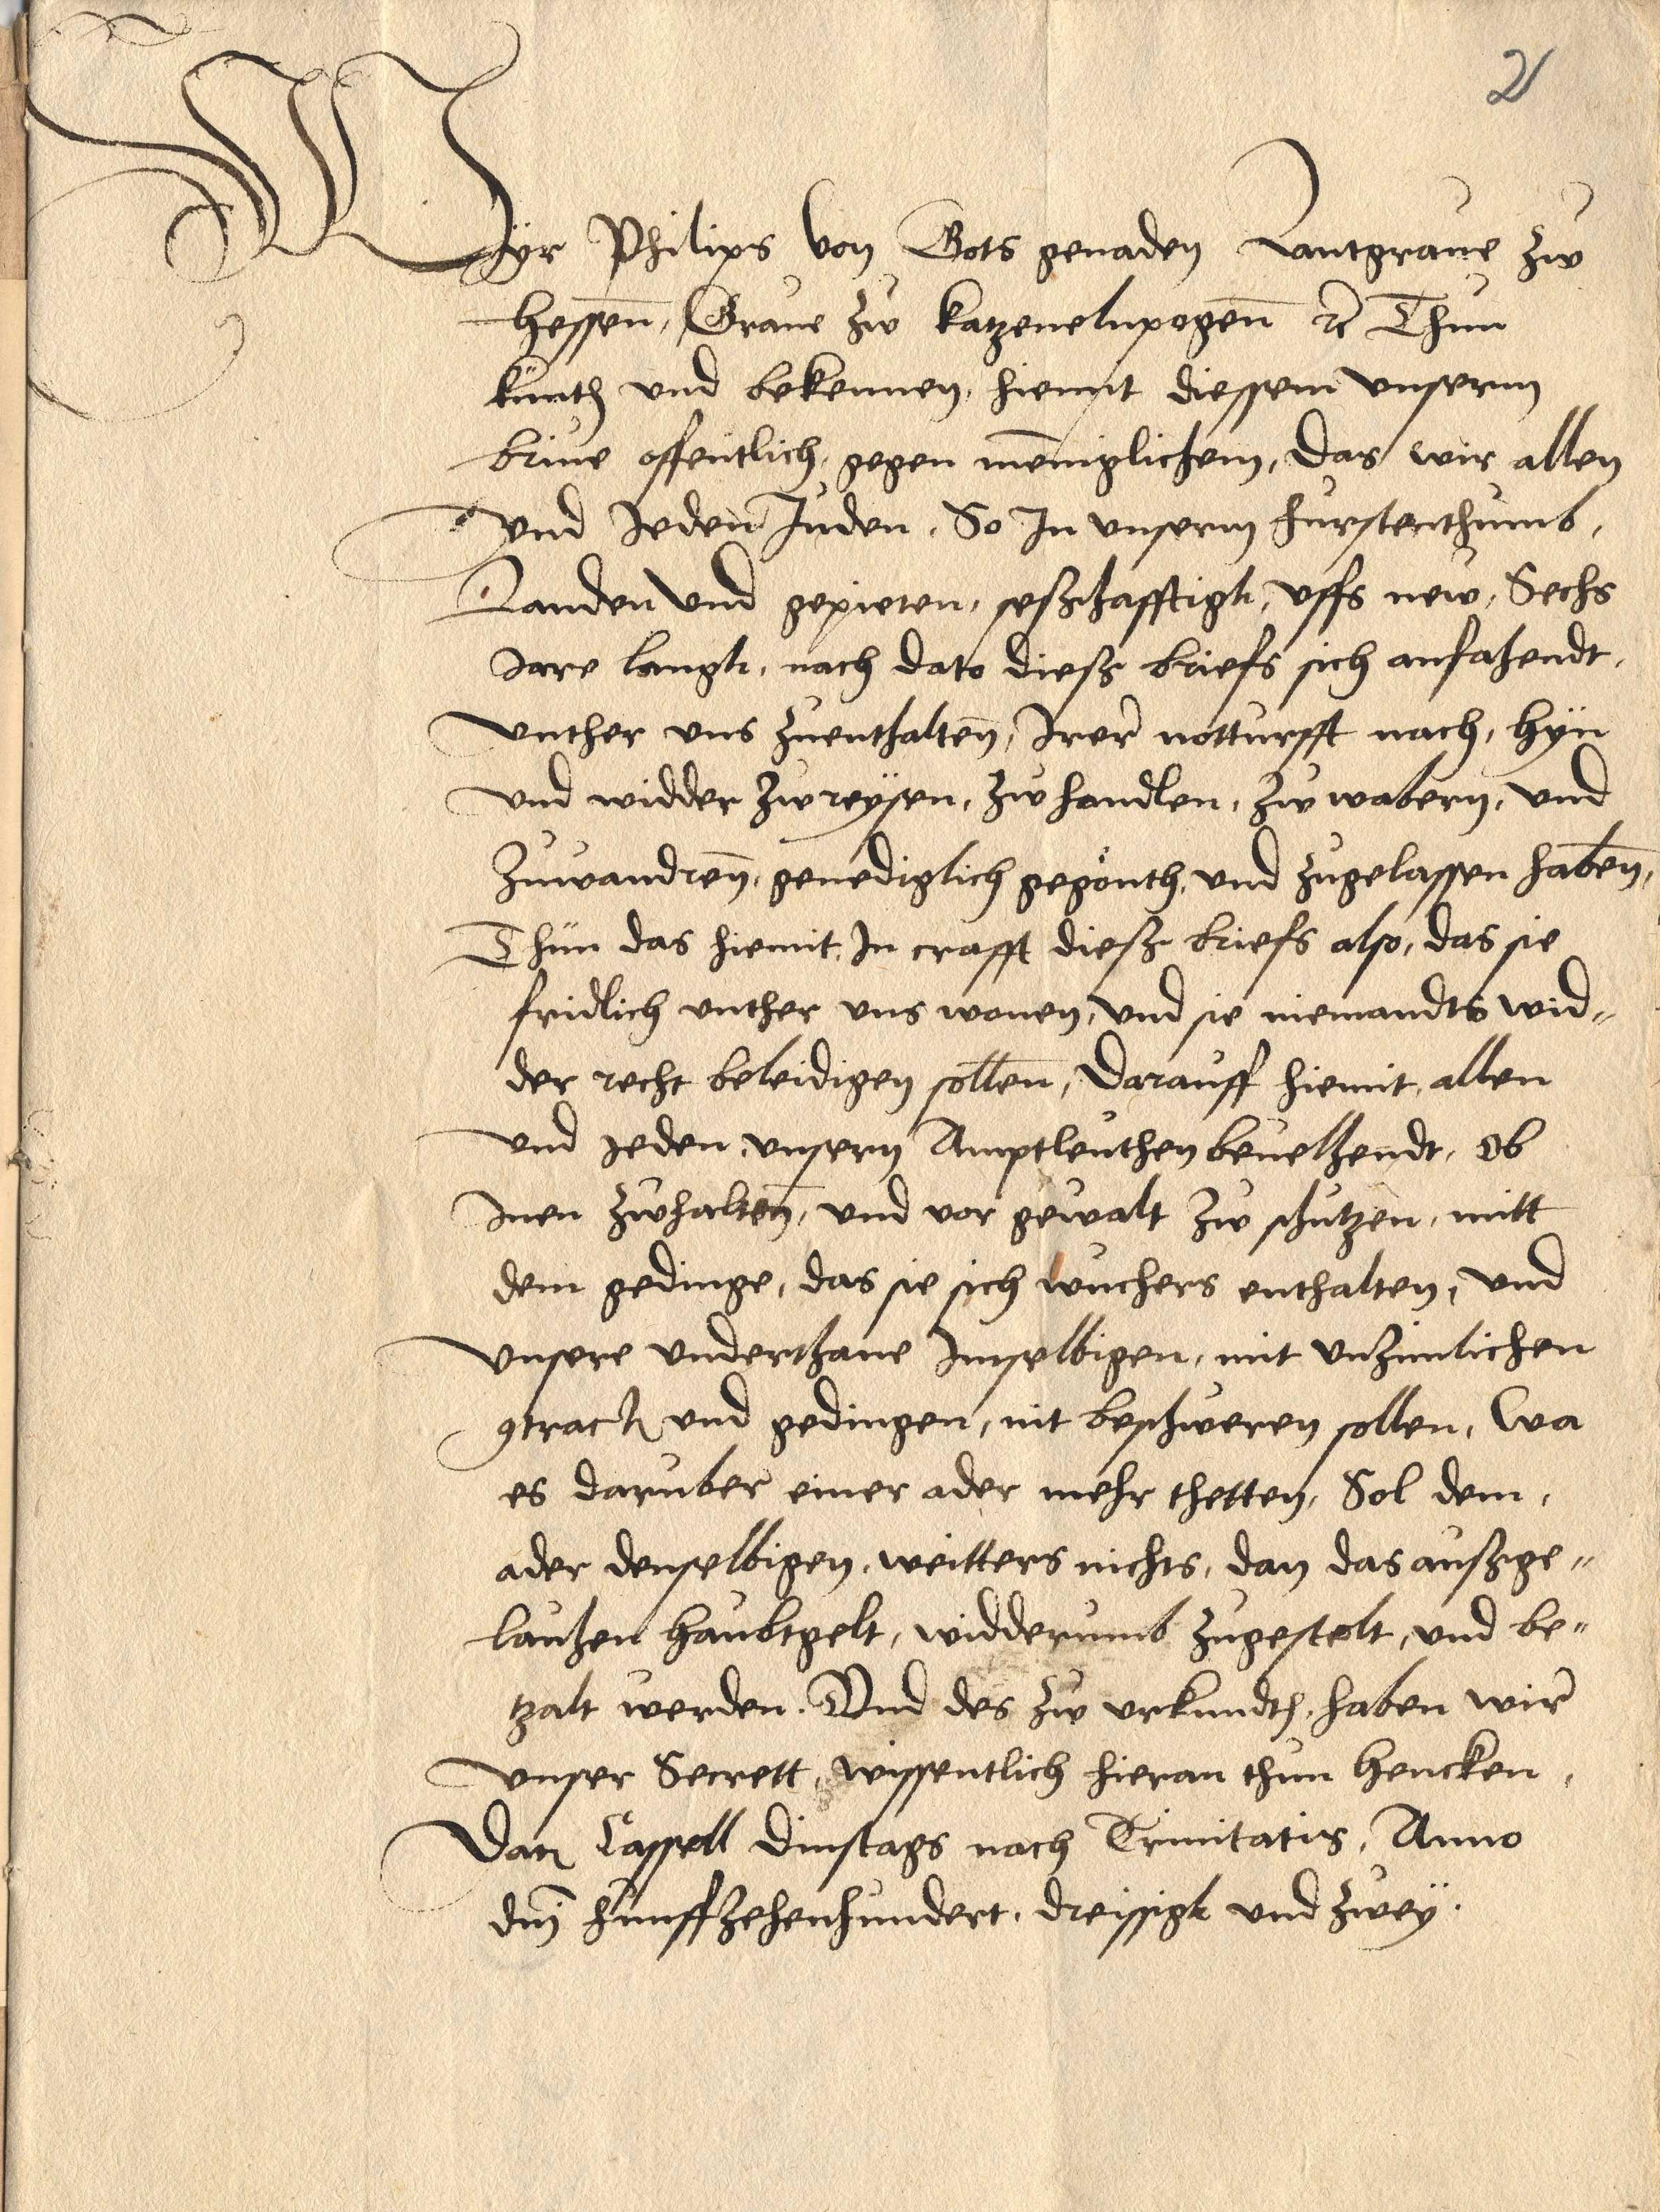 2
Wyr Philips von Gots genaden Lantgraue zw
Hessen, Graue zw Katzenelnpogen rc Thun
kunth vnd bekennen, hiemit diessem vnserm
briue offentlich, gegen meniglichem, das wir allen
vnd Jeden Juden, So Jn vnserm furstenthumb,
Landen vnd gepieten, seßhafftigk, vffs new, Sechs
Jare langk, nach dato dieß briefs sich anfahendt,
vnther vns zuenthalten, Jrer notturfft nach, hyn
vnd widder zw reysen, zw handlen, zw wabern, vnd
zuwandren, genediglich gegönth, vnd zugelassen haben,
Thun das hiemit Jn crafft dieß briefs also, das sie
fridlich vnther vns wonen, vnd sie niemandts wid„
der recht beleidigen sollen, Darauff hiemit, allen
vnd Jeden vnsern Amptleuthen beuelhendt, ob
Jnen zwhalten, vnd vor gewalt zw schutzen, mitt
dem gedinge, das sie sich wuchers enthalten, vnd
vnsere vnderthane Jmselbigen, mit vnzimlichen
9tract vnd gedingen, nit beschweren sollen, Wa
es daruber einer ader mehr thetten, Sol dem,
ader denselbigen, weitters nichts, dan das außge„
lauhen haubtgelt, widderumb zugestelt, vnd be„
tzalt werden. Vnd des zw vrkundth, haben wir
vnser Secrett, wissentlich hieran thun hencken,
Dat Cassell Dinstags nach Trinitatis, Anno
dni funffzehenhundert, dreissigk vnd zwey.